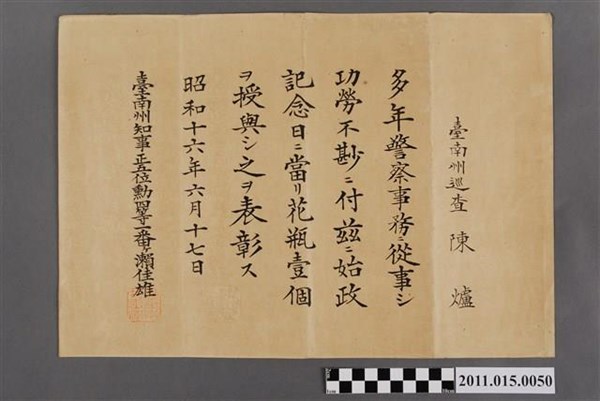 臺南州巡查 陳爐
多年警察事務ニ從事シ
功勞不尠ニ付茲ニ始政
記念日ニ當リ花瓶壹個
ヲ授與シ之ヲ表彰ス
昭和十六年六月十七日
臺南州知事正五位勳四等一番ヶ瀨佳雄
2011.015.0050